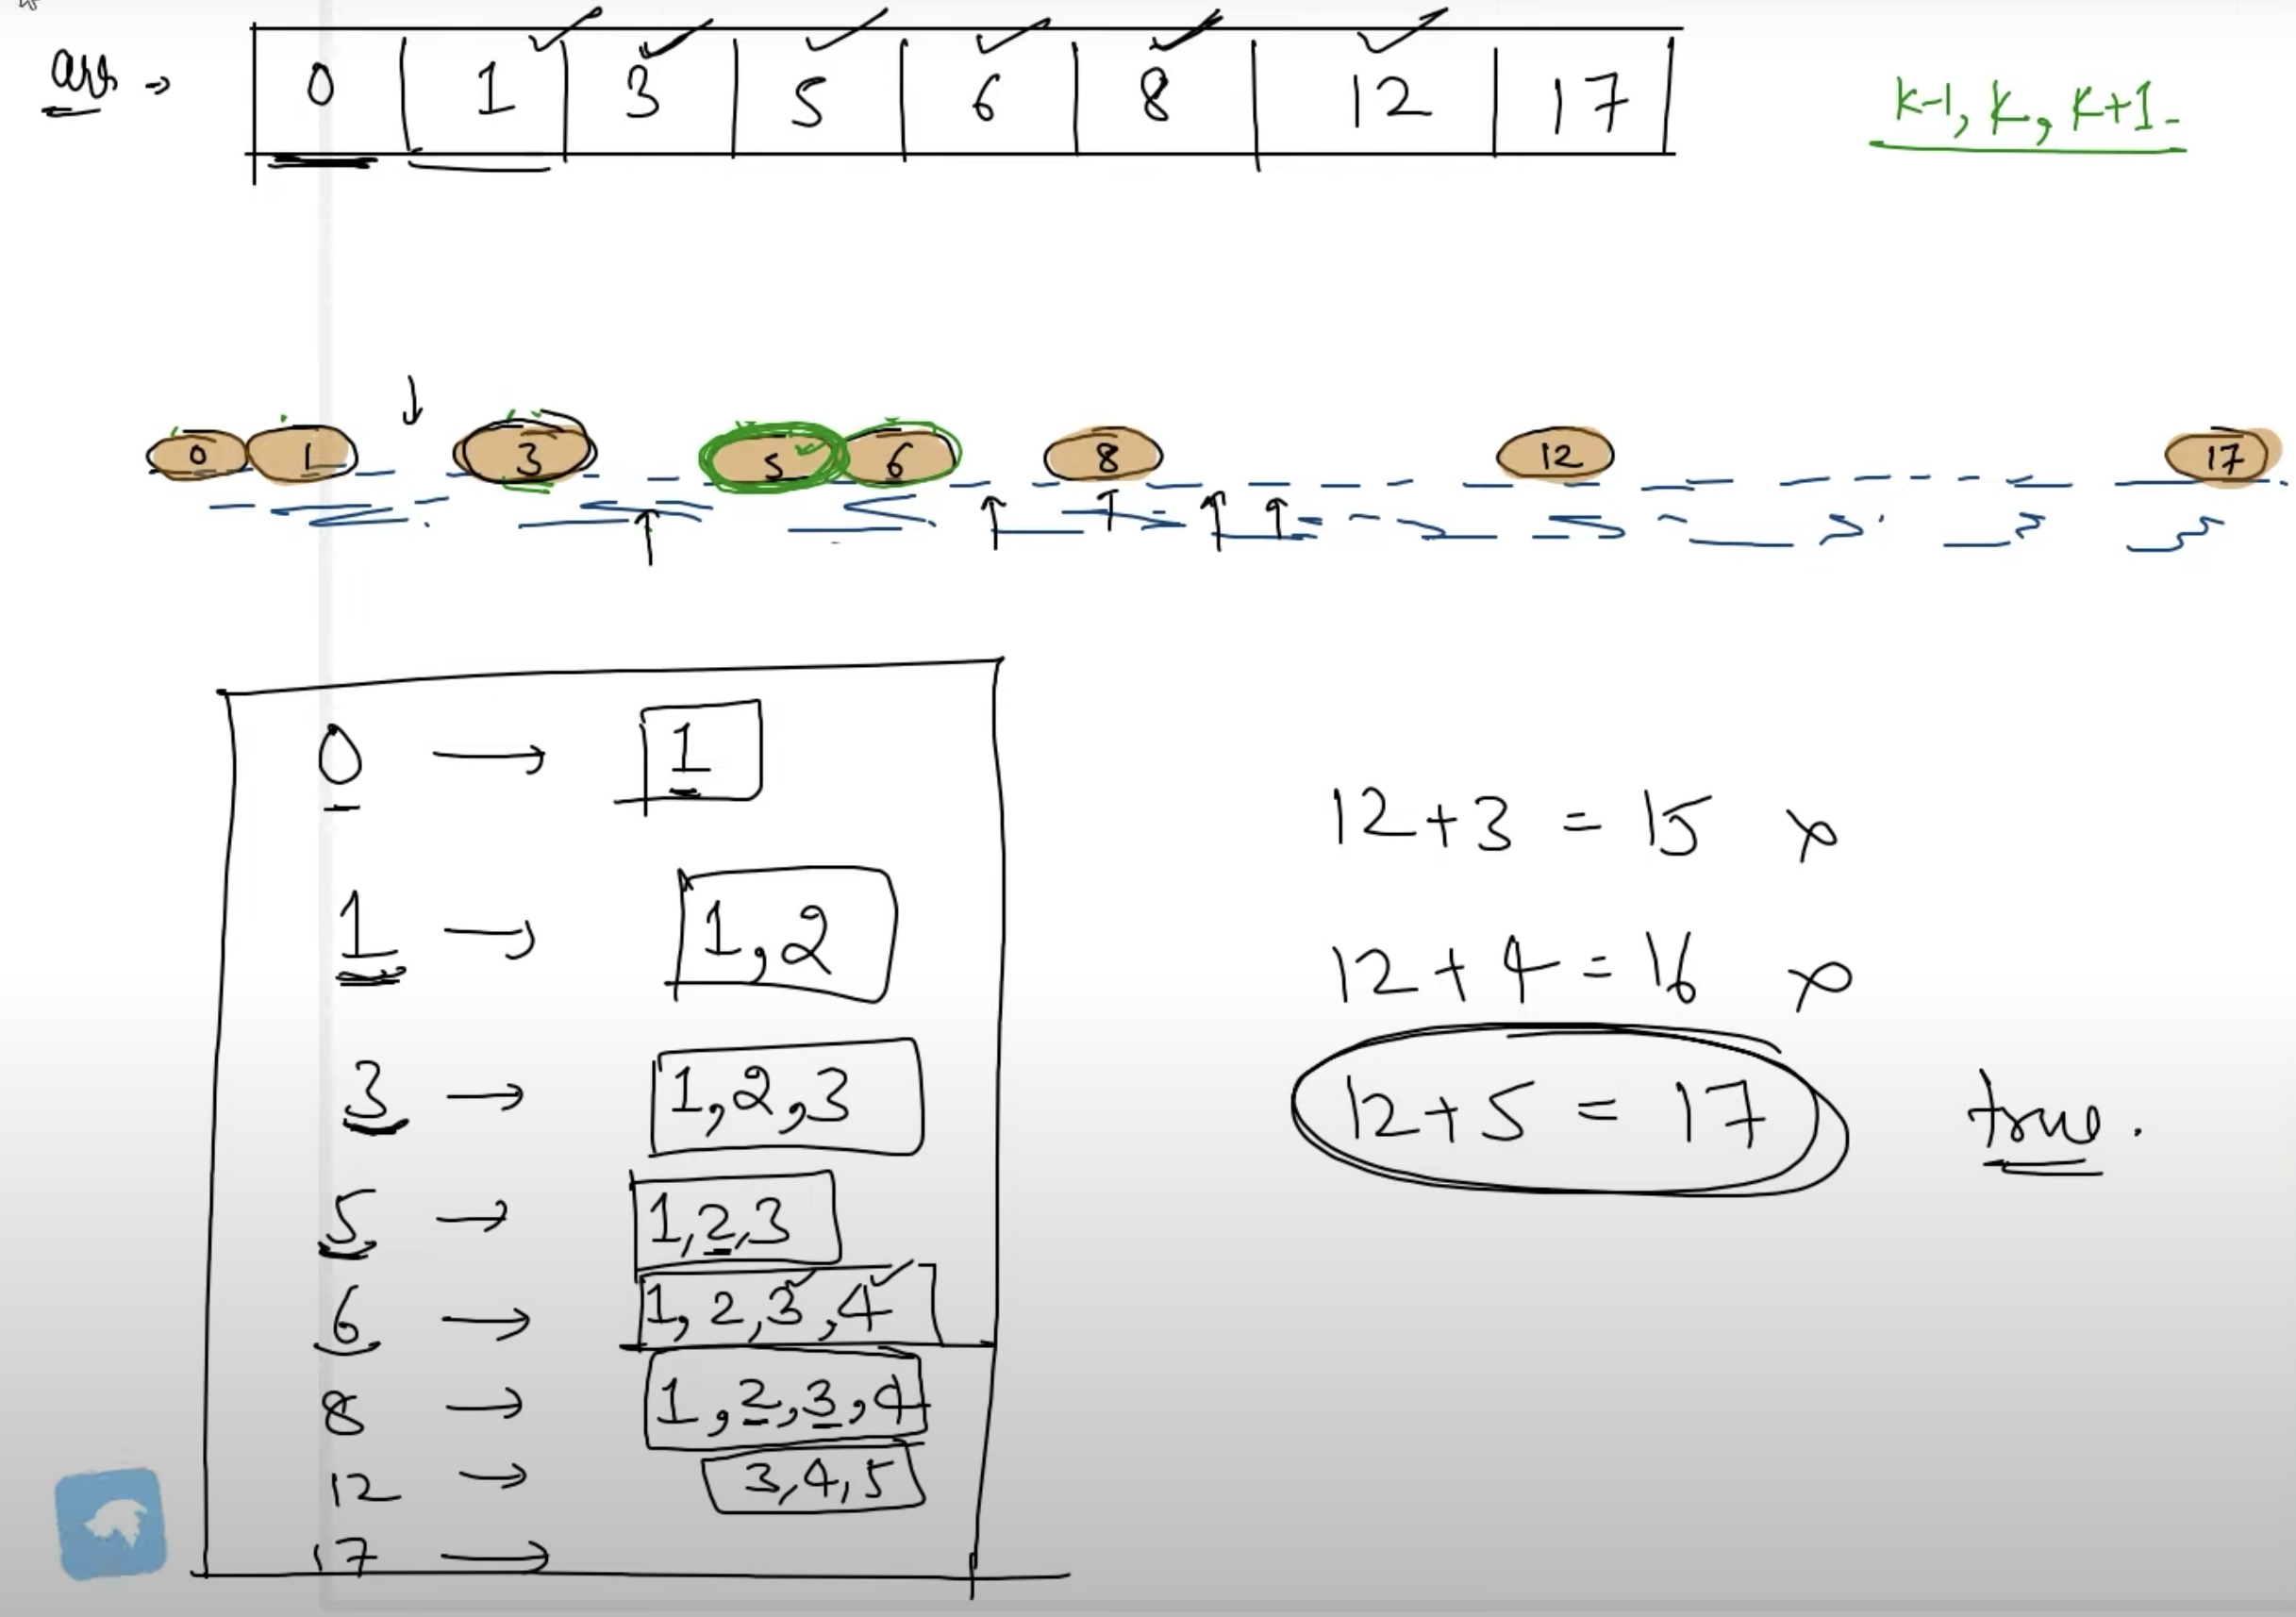 arr → 0 1 3 5 6 8 12 17
k-1, k, k+1
0 1 3 5 6 8 12 17
0 → 1
1 → 1,2
3 → 1,2,3
5 → 1,2,3
6 → 1,2,3,4
8 → 1,2,3,4
12 → 3,4,5
17 →
12+3 = 15 x
12+4 = 16 x
12+5 = 17 true.